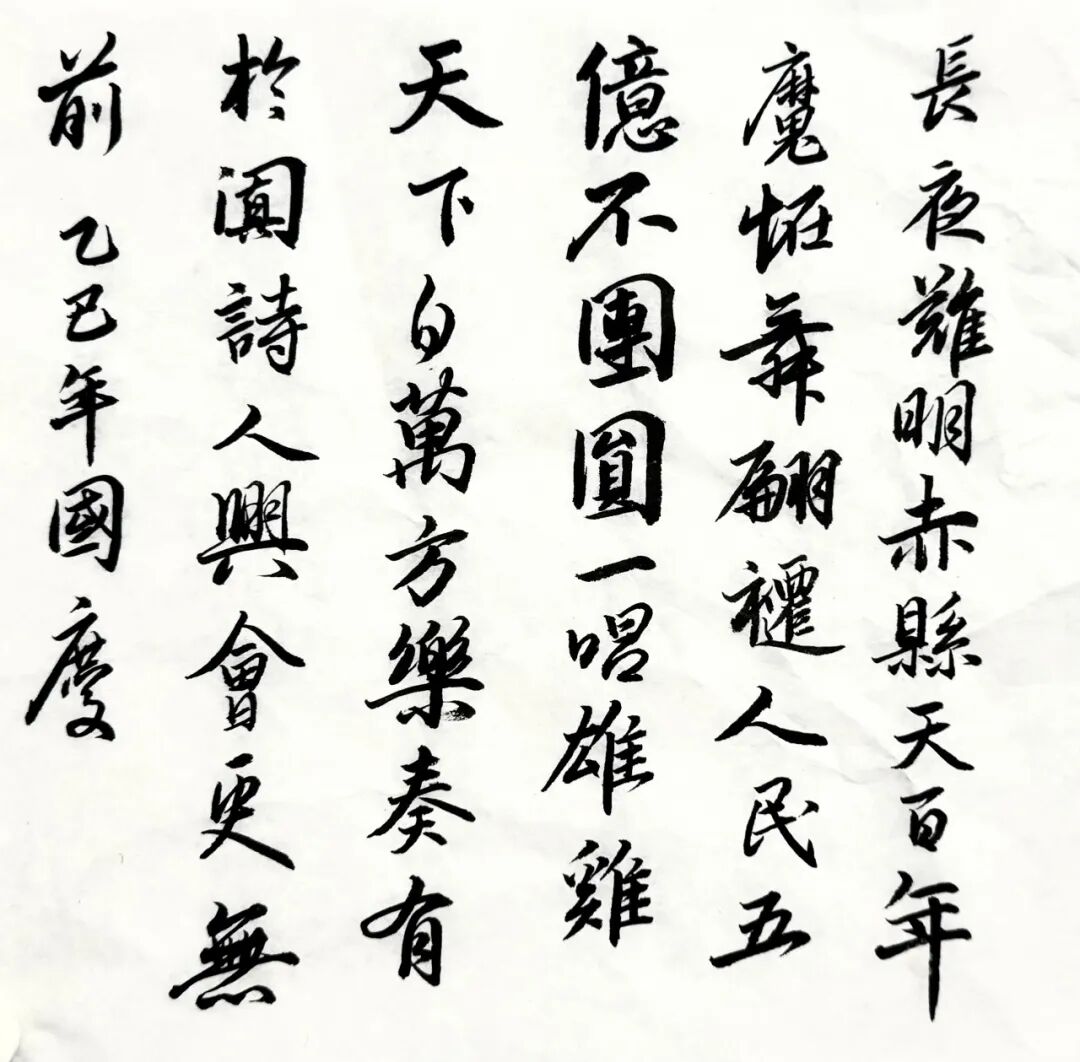 長夜難明赤縣天百年
魔怪舞翩襹人民五
億不團圓一唱雄雞
天下白萬方樂奏有
於闐詩人興會更無
前 乙巳年國慶